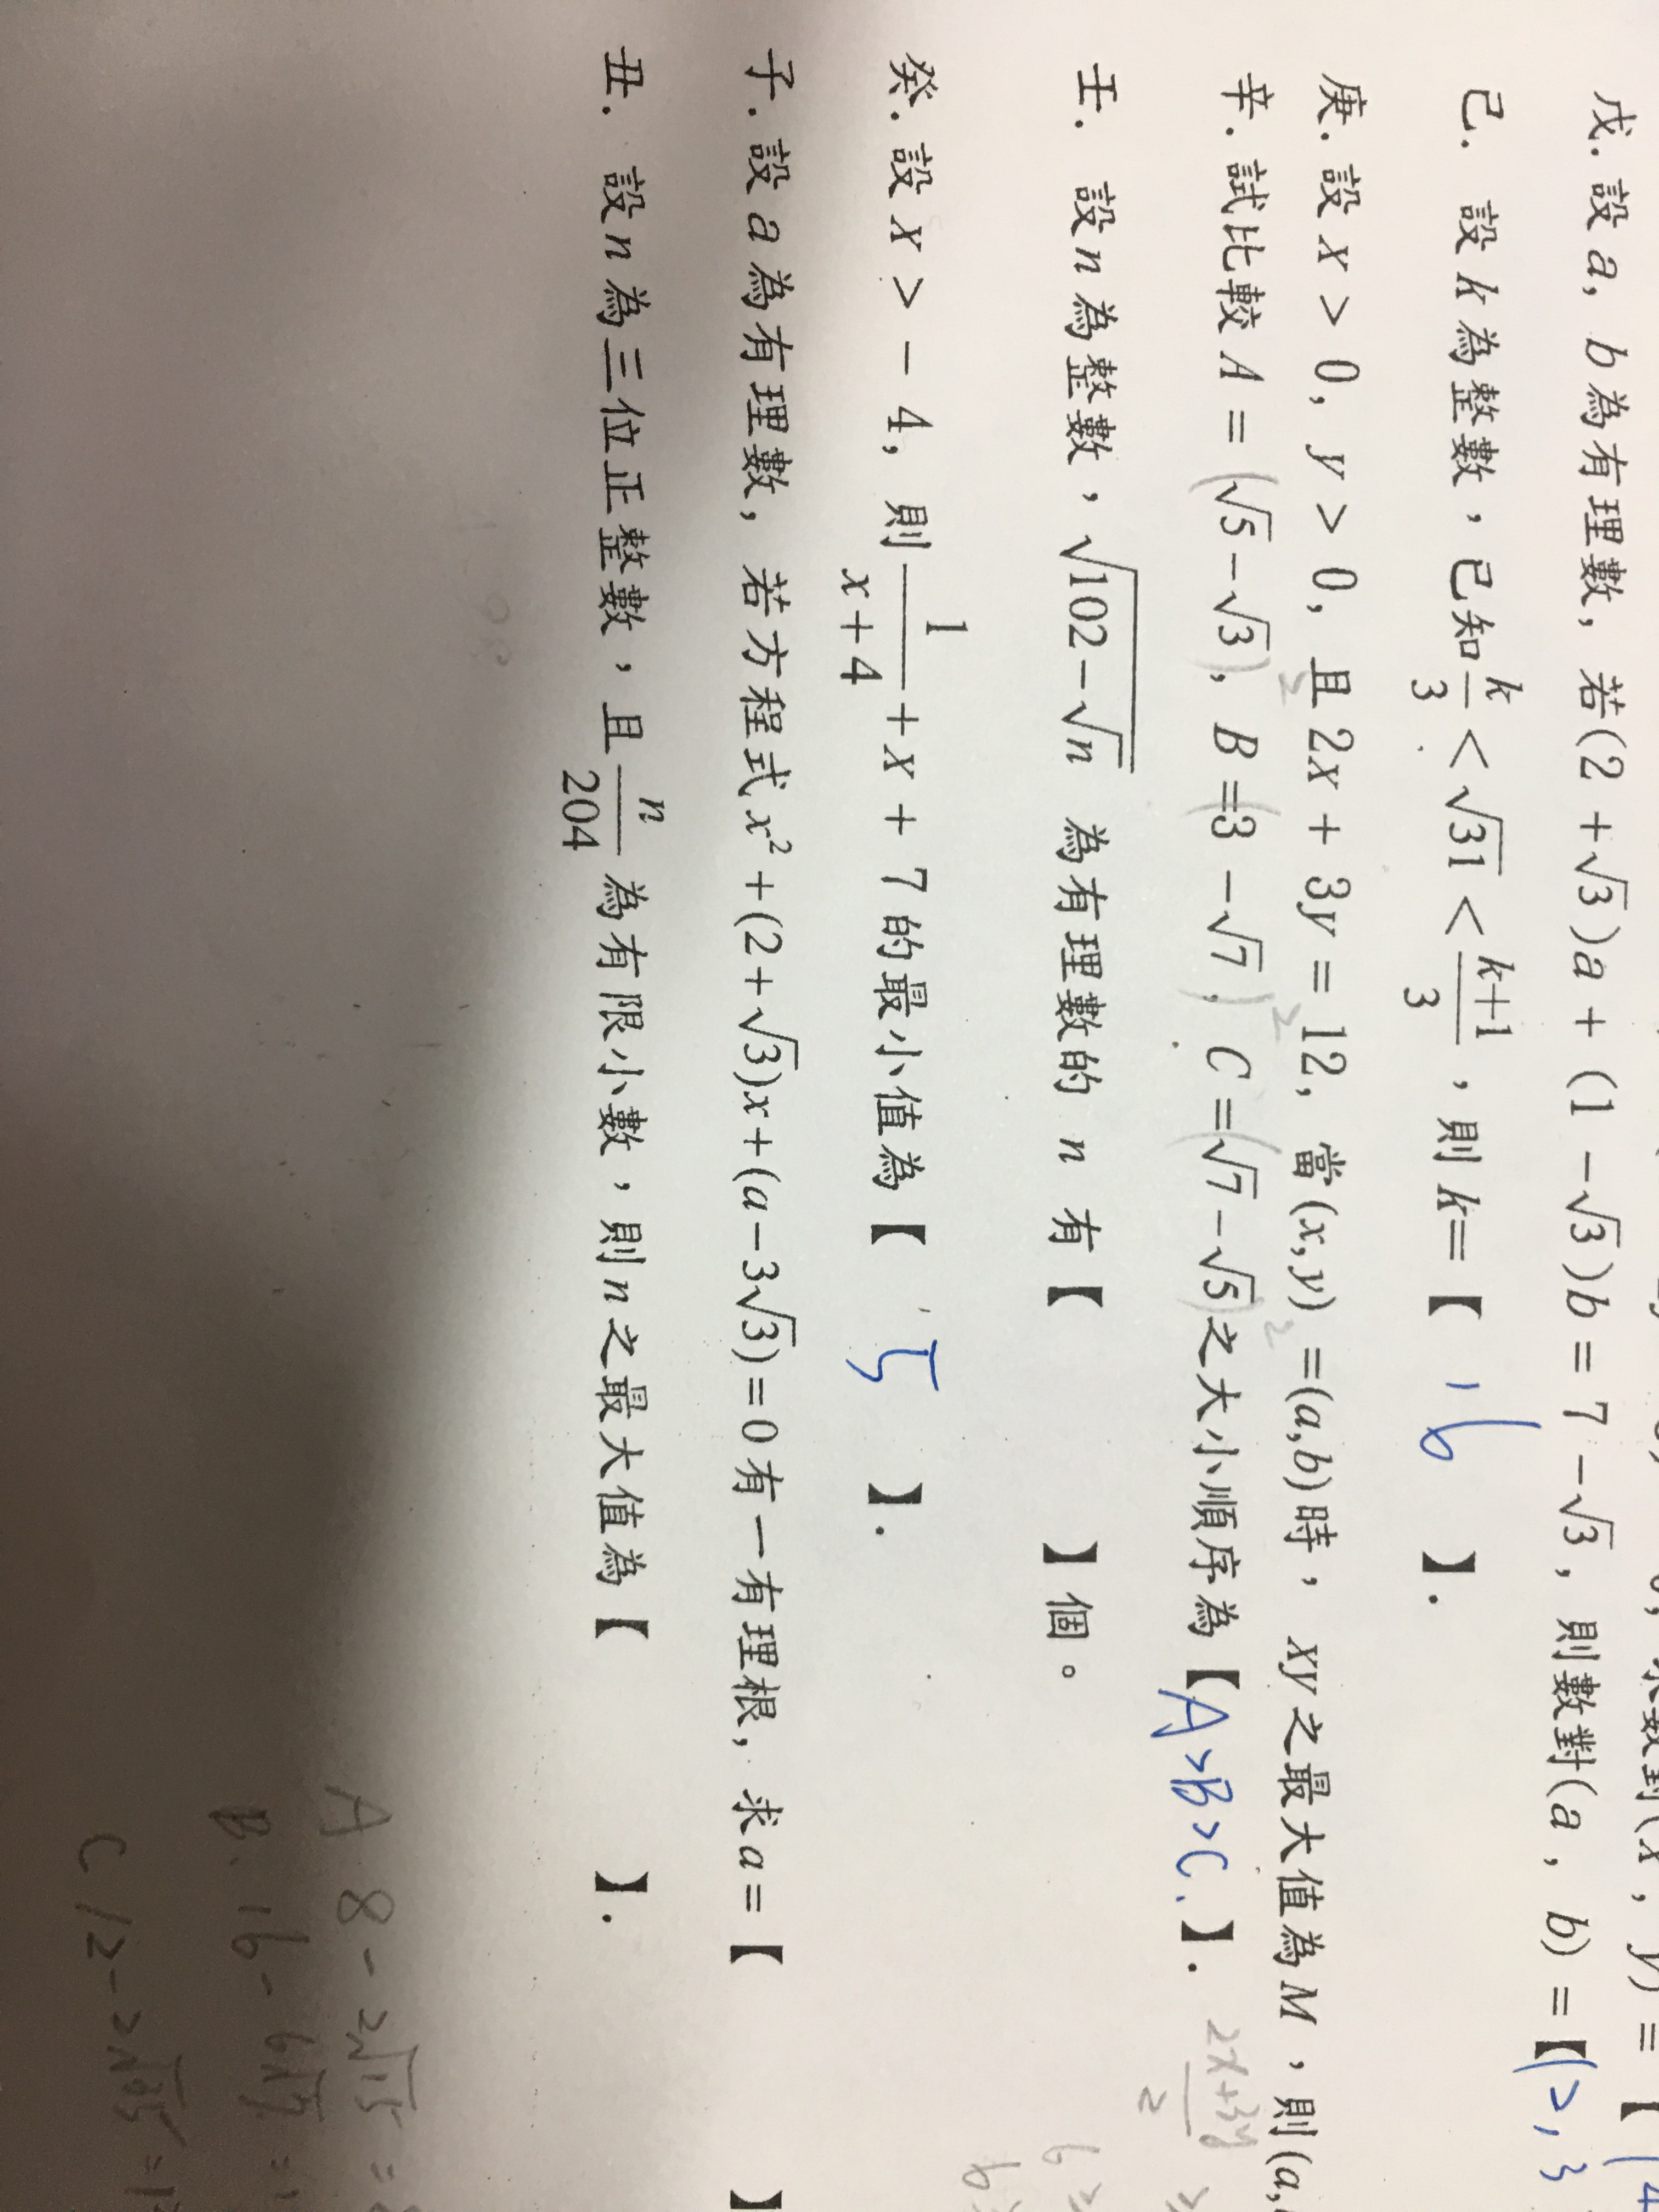 戊. 設 a, b 為有理數, 若(2 +√3)a + (1 -√3)b = 7 -√3, 則數對(a, b) =【(2, 3
己. 設 k 為整數, 已知 k/3 < √31 < (k+1)/3, 則 k=【 16 】.
庚. 設 x > 0, y > 0, 且 2x + 3y = 12, 當(x,y) =(a,b)時, xy之最大值為M, 則(a,
辛. 試比較 A = (√5-√3), B =(3 -√7), C =(√7-√5)之大小順序為【A>B>C.】.
壬. 設n為整數, √(102-√n) 為有理數的 n 有【 】個。
癸. 設 x > - 4, 則 1/(x+4) + x + 7 的最小值為【 5 】.
子. 設 a 為有理數, 若方程式 x²+(2+√3)x+(a-3√3)=0有一有理根, 求a=【 】
丑. 設n為三位正整數, 且 n/204 為有限小數, 則n之最大值為【 】.
2x+3y
2
A 8-2√15 =
B. 16-6√7 =
C 12-2√35 =